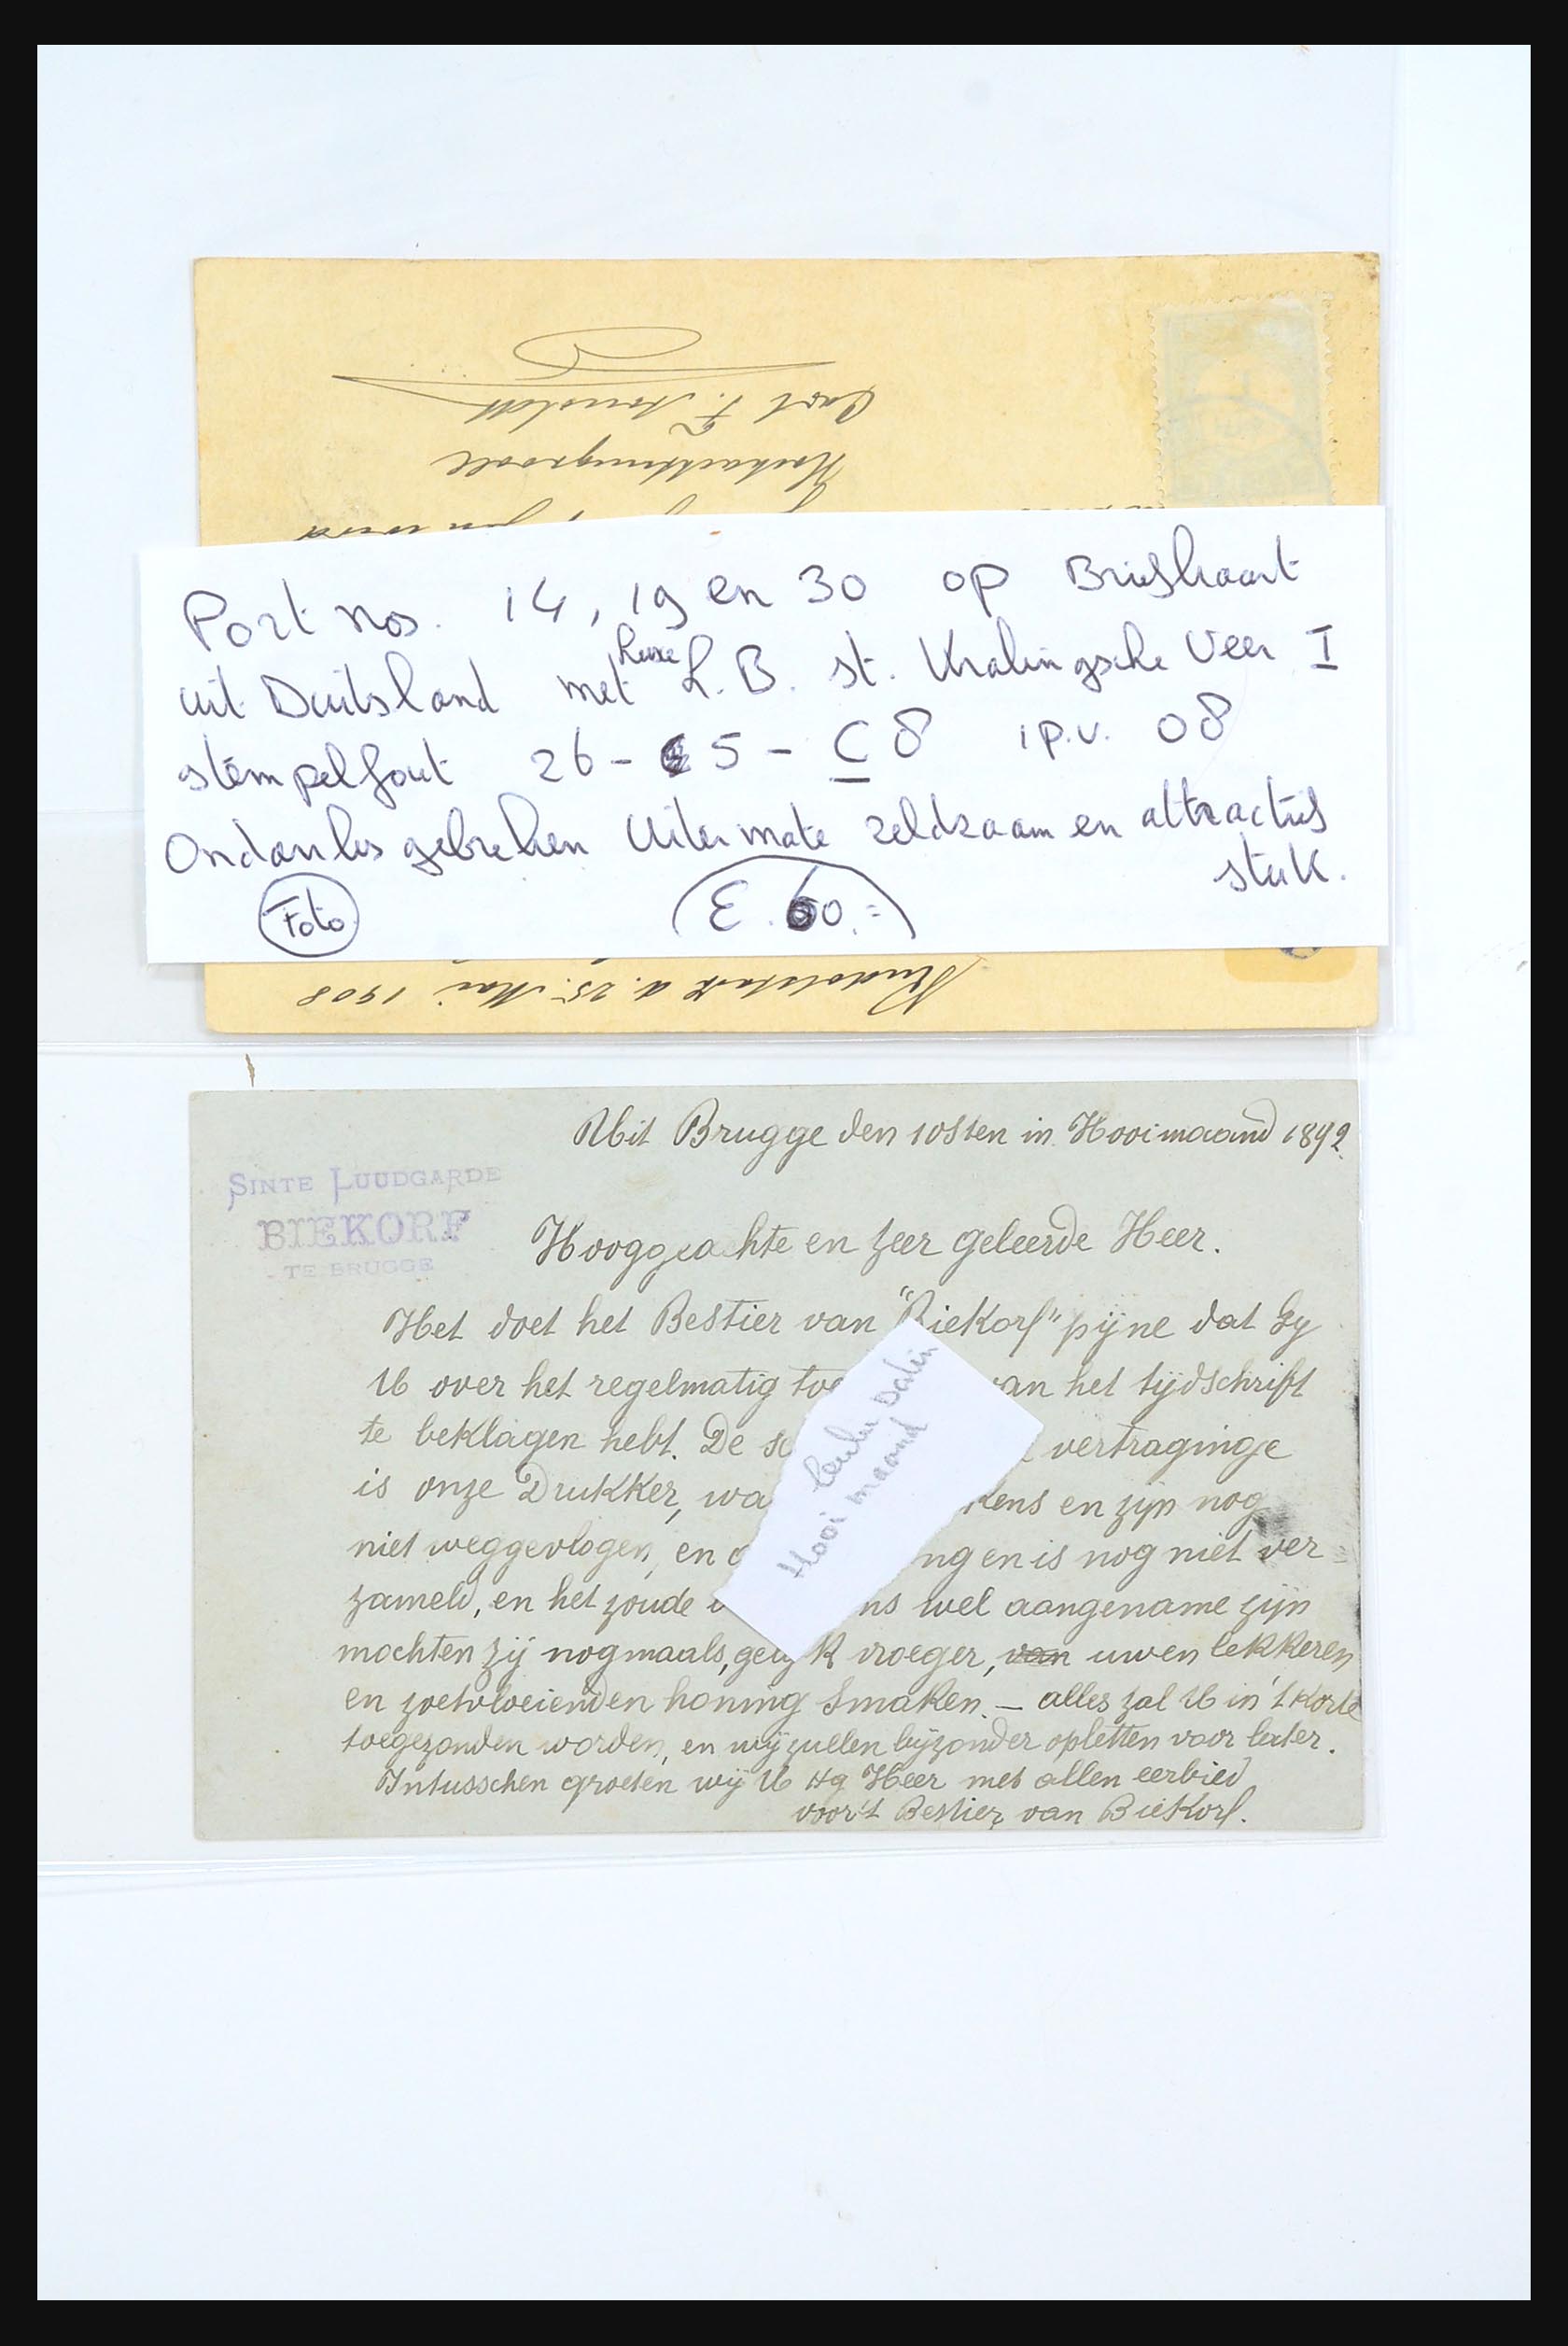 Carl F.
Hochachtungsvoll
Port nos. 14, 19 en 30 op Briefkaart
uit Duitsland met luxe L.B. st. Kralingsche Veer I
stempelfout 26 - 5 - C8 i.p.v. 08
Ondanks gebreken Uitermate zeldzaam en attractief
stuk.
Foto
E. 60.=
Rudolstadt d. 25. Mai 1908
Uit Brugge den 10sten in Hooimaand 1892.
SINTE LUUDGARDE
BIEKORF
TE BRUGGE
Hooggeachte en zeer geleerde Heer.
Het doet het Bestier van "Biekorf" pijne dat Gy
U over het regelmatig toe van het tijdschrift
te beklagen hebt. De sc vertraginge
is onze Drukker, wa kens en zijn nog
niet weggevlogen, en ng en is nog niet ver=
zameld, en het zoude ns wel aangename zijn
mochten zij nogmaals, gelijk vroeger, van uwen lekkeren
en zoetvloeienden honing smaken. — alles zal U in 't korte
toegezonden worden, en wij zullen bijzonder opletten voor later.
Intusschen groeten wij U Hg Heer met allen eerbied
voor 't Bestier van Biekorf.
Leuke Datum
Hooimaand